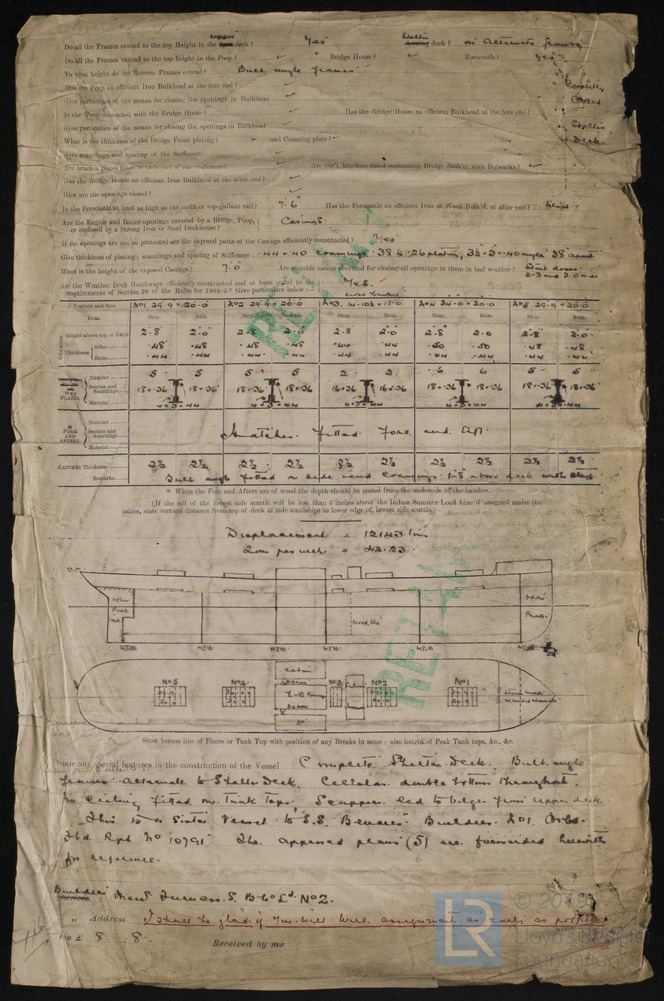 Do all the Frames extend to the top Height in the upper deck? Yes Shelter deck? on Alternate frames
Do all the Frames extend to the top height in the Poop? Bridge House? Forecastle? Yes
To what height do the Reverse Frames extend? Bulb angle frames
Has the Poop an efficient Iron Bulkhead at the fore end?
Complete
Give particulars of the means for closing the openings in Bulkhead
Is the Poop connected with the Bridge House? Has the Bridge House an efficient Bulkhead at the fore end?
Give particulars of the means for closing the openings in Bulkhead
Shelter
What is the thickness of the Bridge Front plating? and Coaming plate?
Deck
Give scantlings and spacing of the Stiffeners
Are bracket plates fitted at each end of the stiffeners? Are bracket plates fitted connecting Bridge Bulk'd. with Bulwarks?
Has the Bridge House an efficient Iron Bulkhead at the after end?
How are the openings closed?
Is the Forecastle at least as high as the main or top-gallant rail? 7'6 Has the Forecastle an efficient Iron or Wood Bulk'd. at after end?
Are the Engine and Boiler openings covered by a Bridge, Poop,
or enclosed by a Strong Iron or Steel Deckhouse? Casings
If the openings are not so protected are the exposed parts of the Casings efficiently constructed? Yes
Give thickness of plating; scantlings and spacing of Stiffeners .44-.40 coamings
What is the height of the exposed Casings? 7'0 Are suitable means provided for closing all openings in them in bad weather? Steel doors
Are the Weather Deck Hatchways efficiently constructed and at least equal to the
requirements of Section 28 of the Rules for 1904-5? Give particulars below:— Yes.
Position and Size No1 29.9 × 20.0 No2 29.9 × 20.0 No3 No4 No5 29.9 × 20.0
Item. Ship. Rule. Ship. Rule. Ship. Rule. Ship. Rule. Ship. Rule.
COAMING Height above top of DECK 2.8 2.0 2.8 2.0 2.8 2.0 2.8 2.0 2.8 2.0
Thickness Sides .48 .48 .48 .48 .48 .48 .50 .50 .48 .48
Ends .44 .44 .44 .44 .44 .44 .44 .44 .44 .44
WEB PLATES Number 5 5 5 5 2 2 6 6 5 5
Section and Scantlings 18×.36 18×.36 18×.36 18×.36 16×.36 16×.36 18×.36 18×.36 18×.36 18×.36
Material
FORE AND AFTERS Number
Section and Scantlings Hatches fitted Fore and Aft
Material
HATCHES Thickness 2½ 2½ 2½ 2½ 2½ 2½ 2½ 2½ 2½
Remarks Bulb angle fitted on side and coamings 1.8 above deck with stays
* When the Fore and Afters are of wood the depth should be stated from the underside of the hatches.
(If the sill of the lowest side scuttle will be less than 6 inches above the Indian Summer Load line if assigned under the
tables, state vertical distance from top of deck at side amidships to lower edge of lowest side scuttle)
Displacement = 12143 tons
Tons per inch = 42.23
RETAIN
After Peak
Peak
RETAIN
No5 No4 No3 No2 No1
Show herein line of Floors or Tank Top with position of any Breaks in same; also height of Peak Tank tops, &c., &c.
State any special features in the construction of the Vessel Complete Shelter Deck. Bulb angle
frames alternate to Shelter Deck. Cellular double bottom throughout.
No ceiling fitted on Tank Tops. Scuppers led to bilges from upper deck
This is a Sister Vessel to "S.S. Benares" Builders No1,
Hbd Rpt No 10791 The approved plans (5) are forwarded herewith
for reference.
Builders Mess Furness S. B. Co Ld No2.
" Address I shall be glad if you will have assignment as early as possible
Fee £ 8 : 8 : Received by me
LR © 2019 Lloyd's Register Foundation